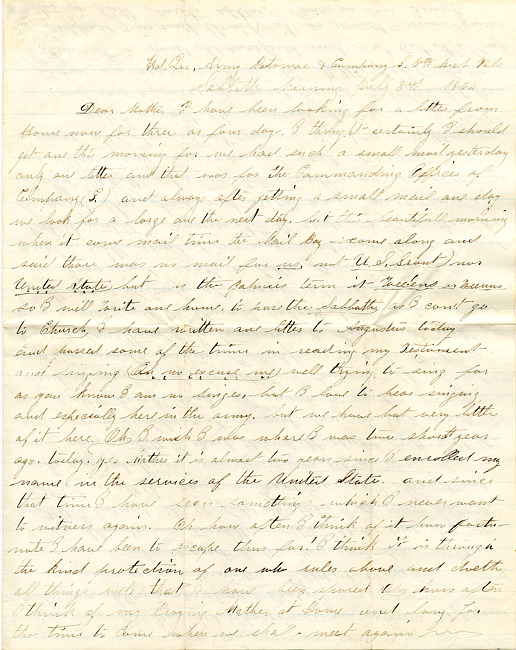 Hd. Qrs. Army Potomac & Company S. 8th Mich Vols
Sabbath Morning July 3rd 1864
Dear Mother I have been looking for a letter from
Home now for three or four days. I thing I certainly I should
get one this morning for we had such a small mail yesterday
only one letter and that was for the Commanding Officer of
Company (S.) and always after getting a small mail one day
we look for a large one the next day. but this beautiful morning
when it come mail time the Mail Boy come along and
said there was no mail for us, not U.S. Scout) nor
United State, but as the term is
so I will write one home to the Sabbath as I cant go
to Church, I have written one letter to Augustus today
and passed some of the time in reading my Testament
and singing (Oh no excuse me) well trying to sing for
as you know I am no singer, but I love to hear singing
and especially here in the army. but we have but very little
of it here. Oh I wish I was where I was two short years
ago. today. yes Mother it is almost two years since I enrolled my
name in the services of the United State. and since
that time I have seen something which I never want
to witness again. Oh how often I think of it how fortu-
nate I have been to escape thus far. I think it is through
the kind protection of one who rules above and doeth
all things well that I have been spared Oh how often
I think of my Praying Mother at home and long for
the time to come when we shal meet again